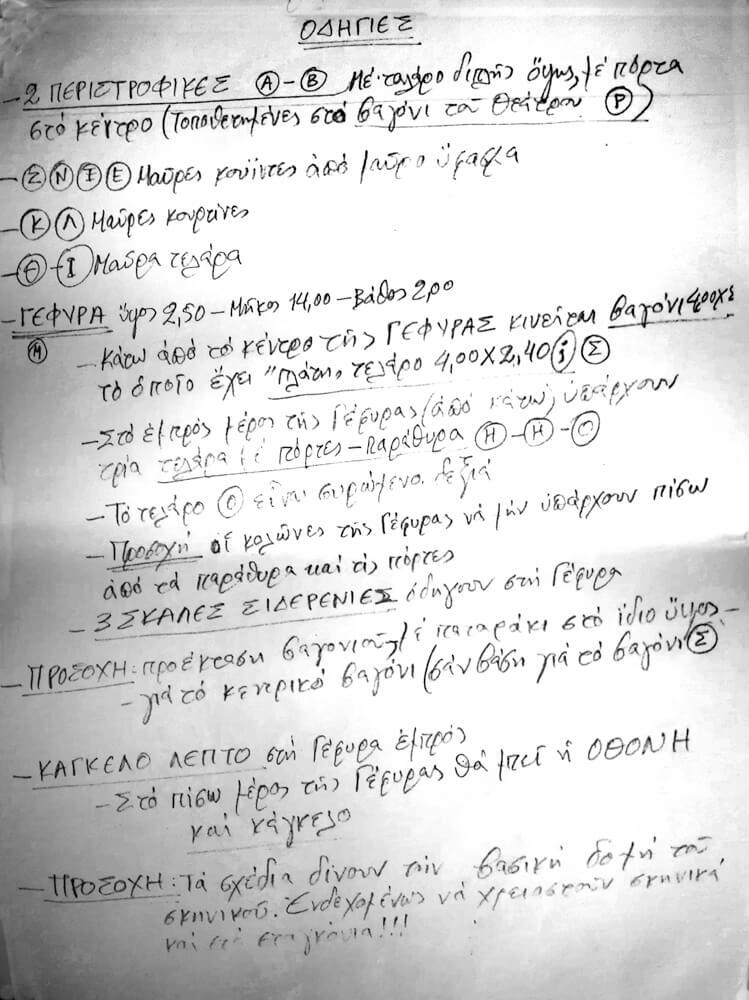 ΟΔΗΓΙΕΣ
- 2 ΠΕΡΙΣΤΡΟΦΙΚΕΣ Α - Β Μέ ταλάρο διπλής ὄψης, μέ πόρτα
στό κέντρο (Τοποθετημένες στό βαγόνι τοῦ Θεάτρου Ρ)
- Σ Ν Ξ Ε Μαῦρες κουΐντες ἀπό μαῦρο ὕφασμα
- Κ Λ Μαῦρες κουρτίνες
- Θ - Ι Μαῦρα τελάρα
- ΓΕΦΥΡΑ ὕψος 2,50 - Μῆκος 14,00 - Βάθος 2,00
Μ - Κάτω ἀπό τό κέντρο τῆς ΓΕΦΥΡΑΣ κινεῖται βαγόνι 4,00Χ2
τό ὁποῖο ἔχει "πλάτη" τελάρο 4,00 Χ 2,40 j Σ
- Στό ἐμπρός μέρος τῆς Γέφυρας (ἀπό κάτω) ὑπάρχουν
τρία τελάρα μέ πόρτες - παράθυρα Η - Η - Ο
- Τό τελάρο Ο εἶναι συρώμενο δεξιά
- Προσοχή οἱ κολῶνες τῆς Γέφυρας νά μήν ὑπάρχουν πίσω
ἀπό τά παράθυρα καί τίς πόρτες
- 3 ΣΚΑΛΕΣ ΣΙΔΕΡΕΝΙΕΣ ὁδηγοῦν στή Γέφυρα
- ΠΡΟΣΟΧΗ: προέκταση βαγονιοῦ μέ παταράκι στό ἴδιο ὕψος -
- γιά τό κεντρικό βαγόνι (σάν βάση γιά τό βαγόνι Σ)
- ΚΑΓΚΕΛΟ ΛΕΠΤΟ στή Γέφυρα ἐμπρός
- Στό πίσω μέρος τῆς Γέφυρας θά μπεῖ ἡ ΟΘΟΝΗ
καί κάγκελο
- ΠΡΟΣΟΧΗ: Τά σχέδια δίνουν τήν βασική δομή τοῦ
σκηνικοῦ. Ἐνδεχομένως νά χρειαστοῦν σκηνικά
καί στά σταγκόνια!!!